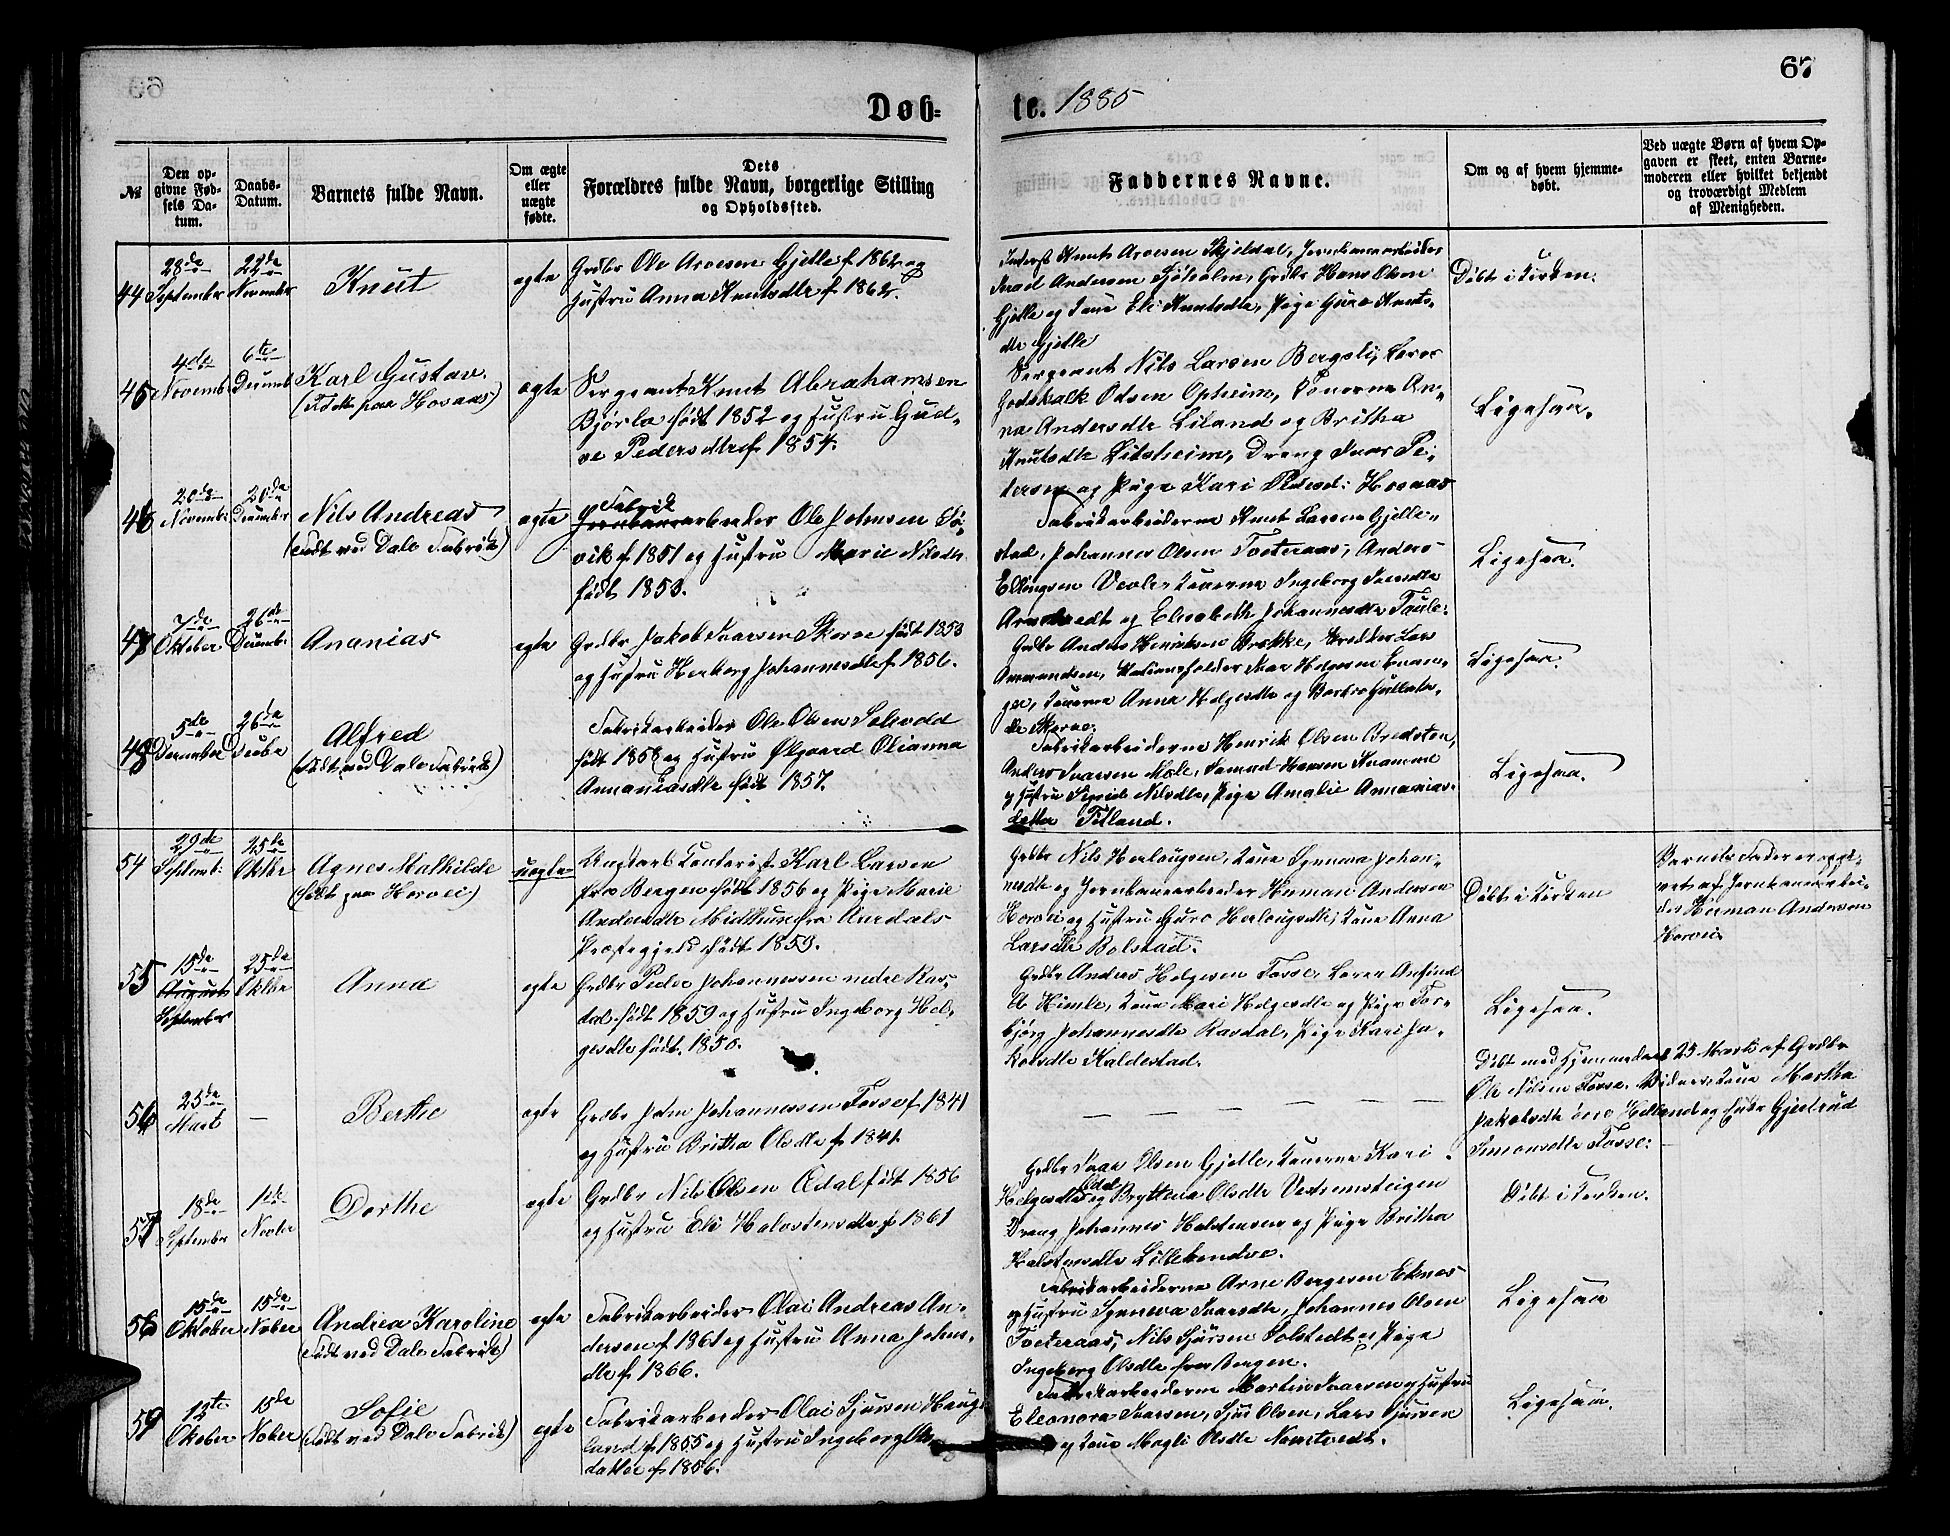 67
Døb-
te. 1885
№
Den opgivne Fødsels Datum.
Daabs-Datum.
Barnets fulde Navn.
Om ægte eller uægte fødte.
Dets Forældres fulde Navn, borgerlige Stilling og Opholdssted.
Faddernes Navne.
Om og af hvem hjemmedøbt.
Ved uægte Børn af hvem Opgaven er skeet, enten Barnemoderen eller hvilket bekjendt og troværdigt Medlem af Menigheden.
44
28de September
22de November
Knut
ægte
Grdbr Ole Arvesen Gjelle f. 1862 og
Hustru Anna Knutsdtr f. 1862.
Knut Arvesen Skjeldal, Jernbanearbeider
Andersen Sjøholm, Grdbr Hans Olsen
Gjelle og Kone Eli Knutsdtr, Pige Guro Knuts-
dtr Gjelle
Døbt i Kirken.
45
4de Novemb
6te Decemb
Karl Gustav.
(Født paa Hovaas)
ægte
Sergeant Knut Abrahamsen
Bjørlo født 1852 og Hustru Gud-
ve Pedersdtr f. 1854.
Sergeant Nils Larsen Bergsli, Lærer
Godskalk Odsen Opheim, Konerne An-
na Andersdtr Liland og Britha
Knutsdtr Litsheim, Dreng Ivar Pe-
tersen og Pige Kari Pedersd: Hovaas
Ligesaa.
46
20de November
26de December
Nils Andreas
(Født ved Dale Fabrik)
ægte
Fabrik
Jernbanearbeider Ole Johnsen
vik f. 1851 og Hustru Marie Nilsdtr
født 1853.
Fabrikarbeiderne Knut Larsen Gjelle-
stad, Johannes Olsen Tveteraas, Anders
Ellingsen Vevle, Konerne Ingeborg Iversdtr
Arnetvedt og Elisabeth Johannesdtr
Ligesaa.
47
7de Oktober
26de Decemb:
Ananias
ægte
Grdbr Jakob Ivarsen Skorve født 1853
og Hustru Herborg Johannesdtr f. 1856.
Grdbr Anders Henriksen Brække, Lars
Amundsen, Stationsholder Ivar Helgesen Evan-
ger, Konerne Anna Helgesdtr og Barbro
dtr Skorve.
Ligesaa.
48
5de December
26de Decbr
Alfred
(Født ved Dale Fabrik)
Fabrikarbeider Ole Olsen
født 1858 og Hustru Olianna
Annaniasdtr født 1857.
Fabrikarbeiderne Henrik Olsen Bredsten,
Anders Ivarsen Mæle, Hansen Kvamme
og Hustru Sigrid Nilsdtr, Pige Amalie Annanias-
datter Titland.
Ligesaa.
54
29de Septemb:
25de Oktbr
Agnes Mathilde
(født paa Horvei)
uægte
Ungkarl Kontorist Karl Larsen
fra Bergen født 1856 og Pige Marie
Andersdtr Midthun fra Aurdals
Præstegjeld født 1859.
Grdbr Nils Herlougsen, Kone Synneva Johan-
nesdtr og Jernbanearbeider Herman Andersen
Horvei og Hustru Guro Herlougsdtr, Kone Anna
Larsdtr Bolstad.
Døbt i Kirken
Barnets Fader er opgi-
vet af Jernbanearbei-
der Herman Andersen
Horvei.
55
15de August
September
25de Oktbr
Anna
ægte
Grdbr Peder Johannessen nedre Ras-
dal født 1859 og Hustru Ingeborg Hel-
gesdtr født 1850.
Grdbr Anders Helgesen Fosse, Lærer Anfind
A Himle, Kone Mari Helgesdtr og Pige Tor-
bjørg Johannesdtr Rasdal, Pige Kari Ja-
kobsdtr Kaldestad.
Ligesaa.
56
25de Mart
—
Berthe
ægte
Grdbr John Johannessen Fosse f. 1841
og Hustru Britha Olsdtr f. 1841.
— — — — —
Døbt med Hjemmedaab 25 Marts af Grdbr
Ole Nilsen Fosse. Vidner, Kone Martha
Jakobsdtr øvre Helland og Enke Gjertrud
Simonsdtr Fosse:
57
18de September
1ste Novbr
Dorthe
ægte
Grdbr Nils Olsen Ædal født 1856
og Hustru Eli Halstensdtr f. 1861
Grdbr Ivar Olsen Gjelle, Konerne Kari
Helgesdtr Ædal og Brytteva Olsdtr Vestremsteigen
Dreng Johannes Halstensen og Pige Britha
Halstensdtr
Døbt i Kirken.
58
15de Oktober
15de Nober
Andrea Karoline
(Født ved Dale Fabrik)
ægte
Fabrikarbeider Olai Andreas An-
dersen f. 1861 og Hustru Anna Johns-
dtr f. 1866.
Fabrikarbeiderne Arne Bergesen Eknes
og Hustru Synneva Ivarsdtr, Johannes Olsen
Tveteraas, Nils Sjursen Solstedt og Pige
Ingeborg Olsdtr fra Bergen.
Ligesaa
59
12te Oktober
15de Nober
Sofie
(Født ved Dale Fabrik)
ægte
Fabrikarbeider Olai Sjursen Haug-
land f. 1855 og Hustru Ingeborg
datter f. 1856.
Fabrikarbeiderne Martin Ivarsen og Hustru
Eleonora Ivarsen, Sjur Olsen, Lars Sjursen
og Kone Magli Olsdtr Nomtvedt.
Ligesaa.